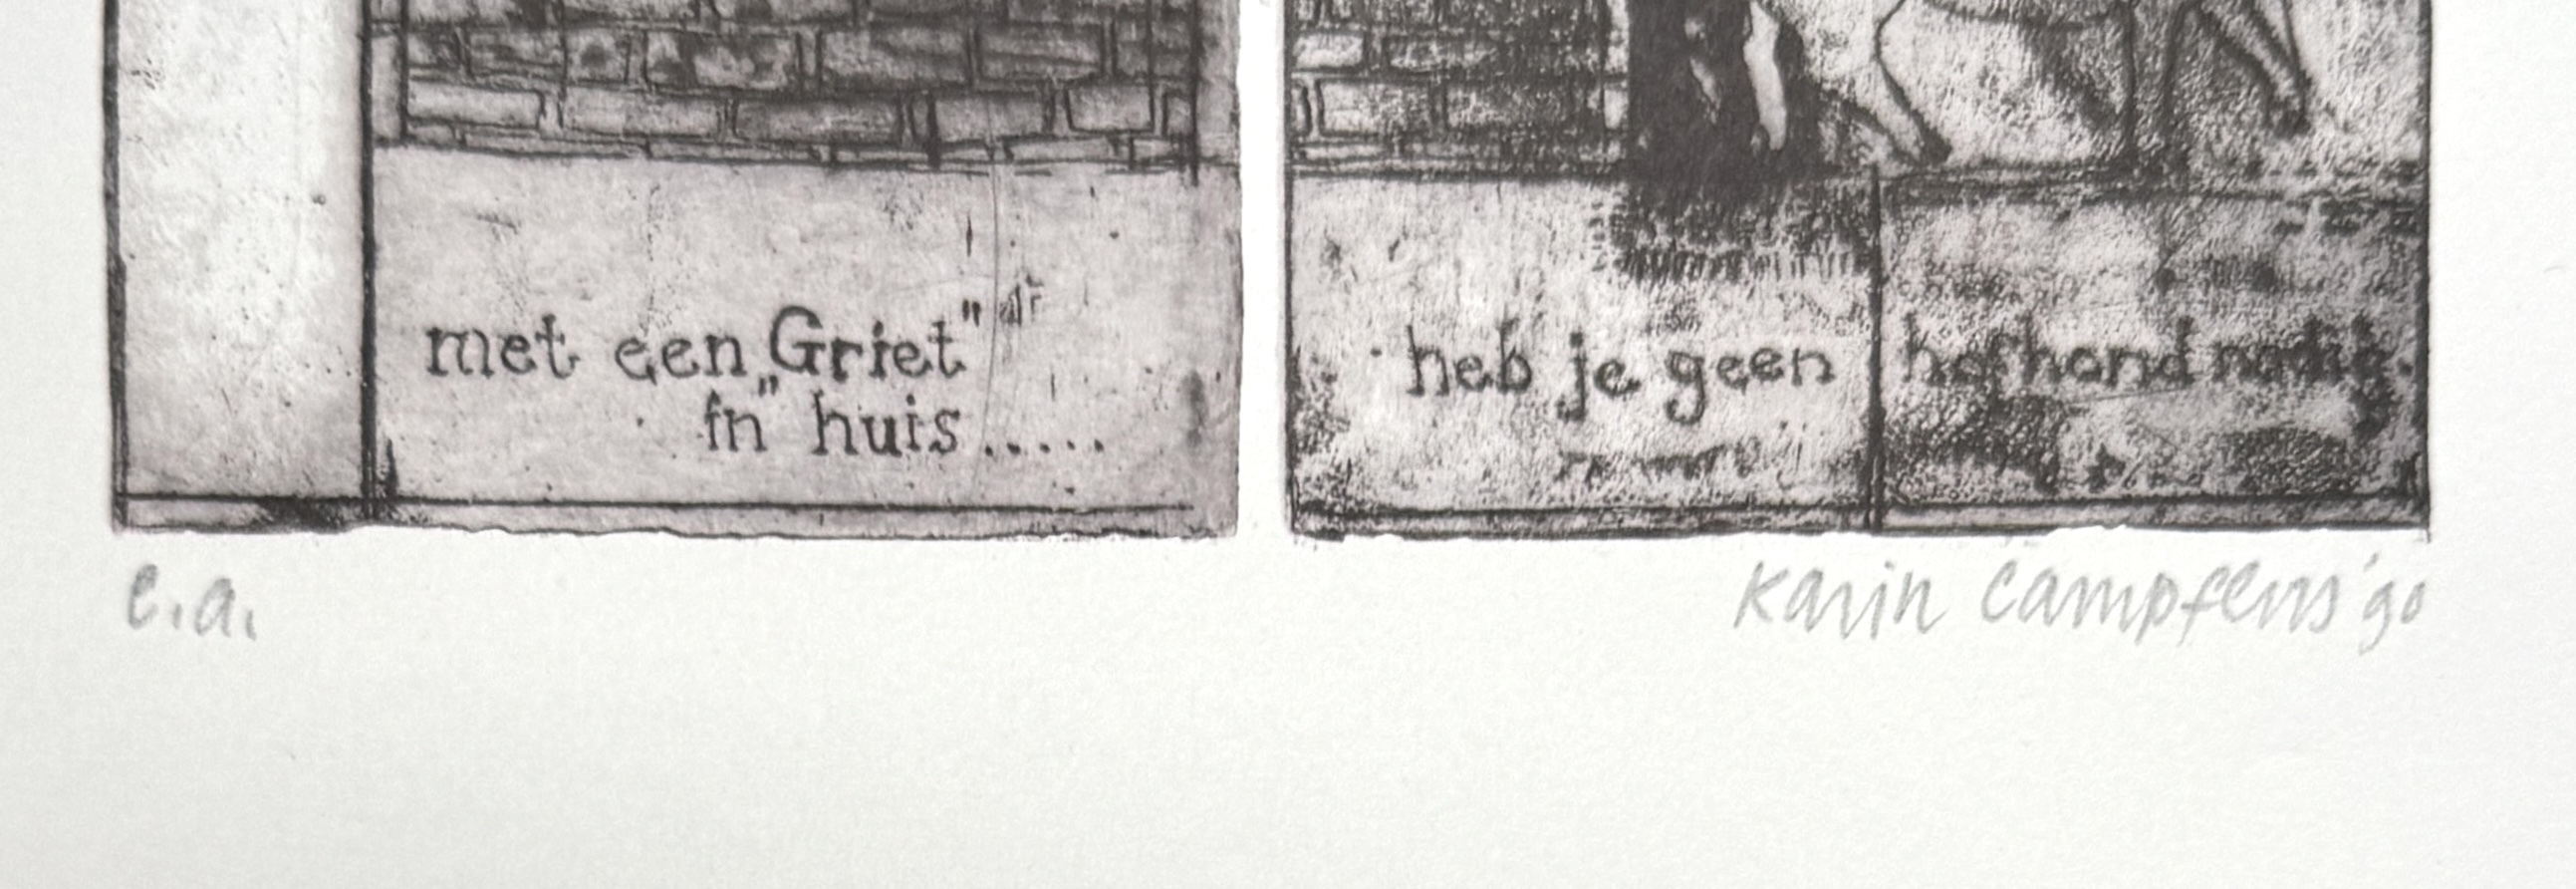 met een „Griet"
in huis.....
heb je geen hofhond nodig.
e.a.
Karin Campfens '90